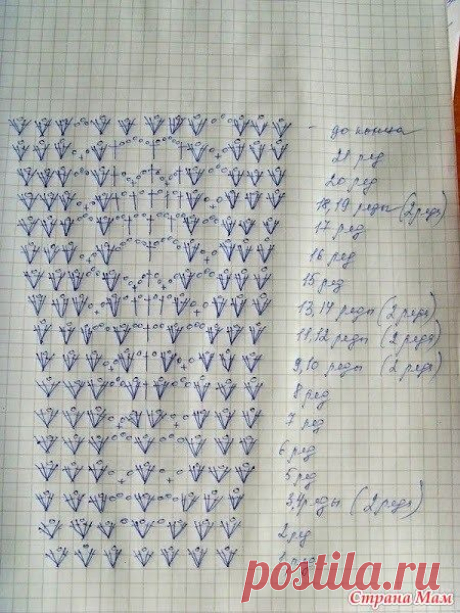 - до конца
21 ряд
20 ряд
18,19 ряды (2 ряда)
17 ряд
16 ряд
15 ряд
13,14 ряды (2 ряда)
11,12 ряды (2 ряда)
9,10 ряды (2 ряда)
8 ряд
7 ряд
6 ряд
5 ряд
3,4 ряды (2 ряда)
2 ряд
1 ряд
postila.ru
Страна Мам